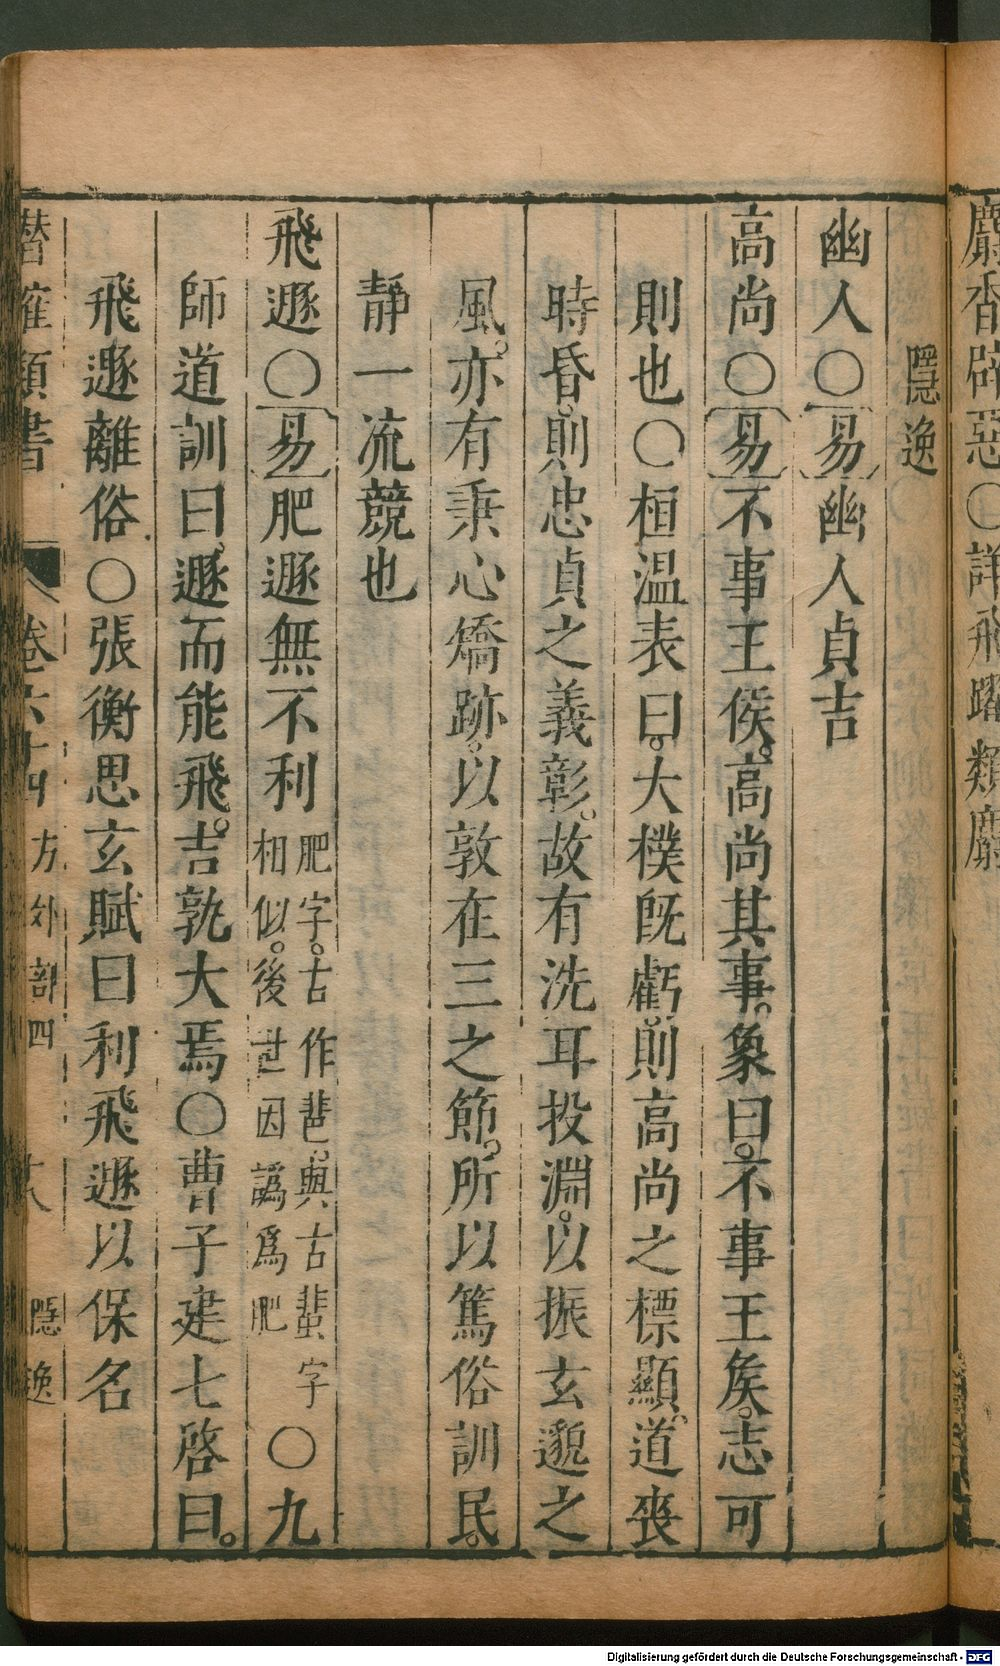 麝香辟惡〇詳飛躍類麝
隱逸
幽人〇易幽人貞吉
高尚〇易不事王侯。高尚其事。象曰。不事王矦。志可
則也〇桓温表曰。大樸旣虧。則高尚之標顯。道喪
時昏。則忠貞之義彰。故有洗耳投淵。以振玄邈之
風。亦有秉心矯跡。以敦在三之節。所以篤俗訓民。
靜一流競也
飛遯〇易肥遯無不利肥字。古作𦐒。與古蜚字相似。後世因譌爲肥〇九
師道訓曰。遯而能飛。吉孰大焉〇曹子建七啓曰。
飛遯離俗〇張衡思玄賦曰利飛遯以保名
潛確類書 卷六十四 方外部四 十八 隱逸
Digitalisierung gefördert durch die Deutsche Forschungsgemeinschaft - DFG